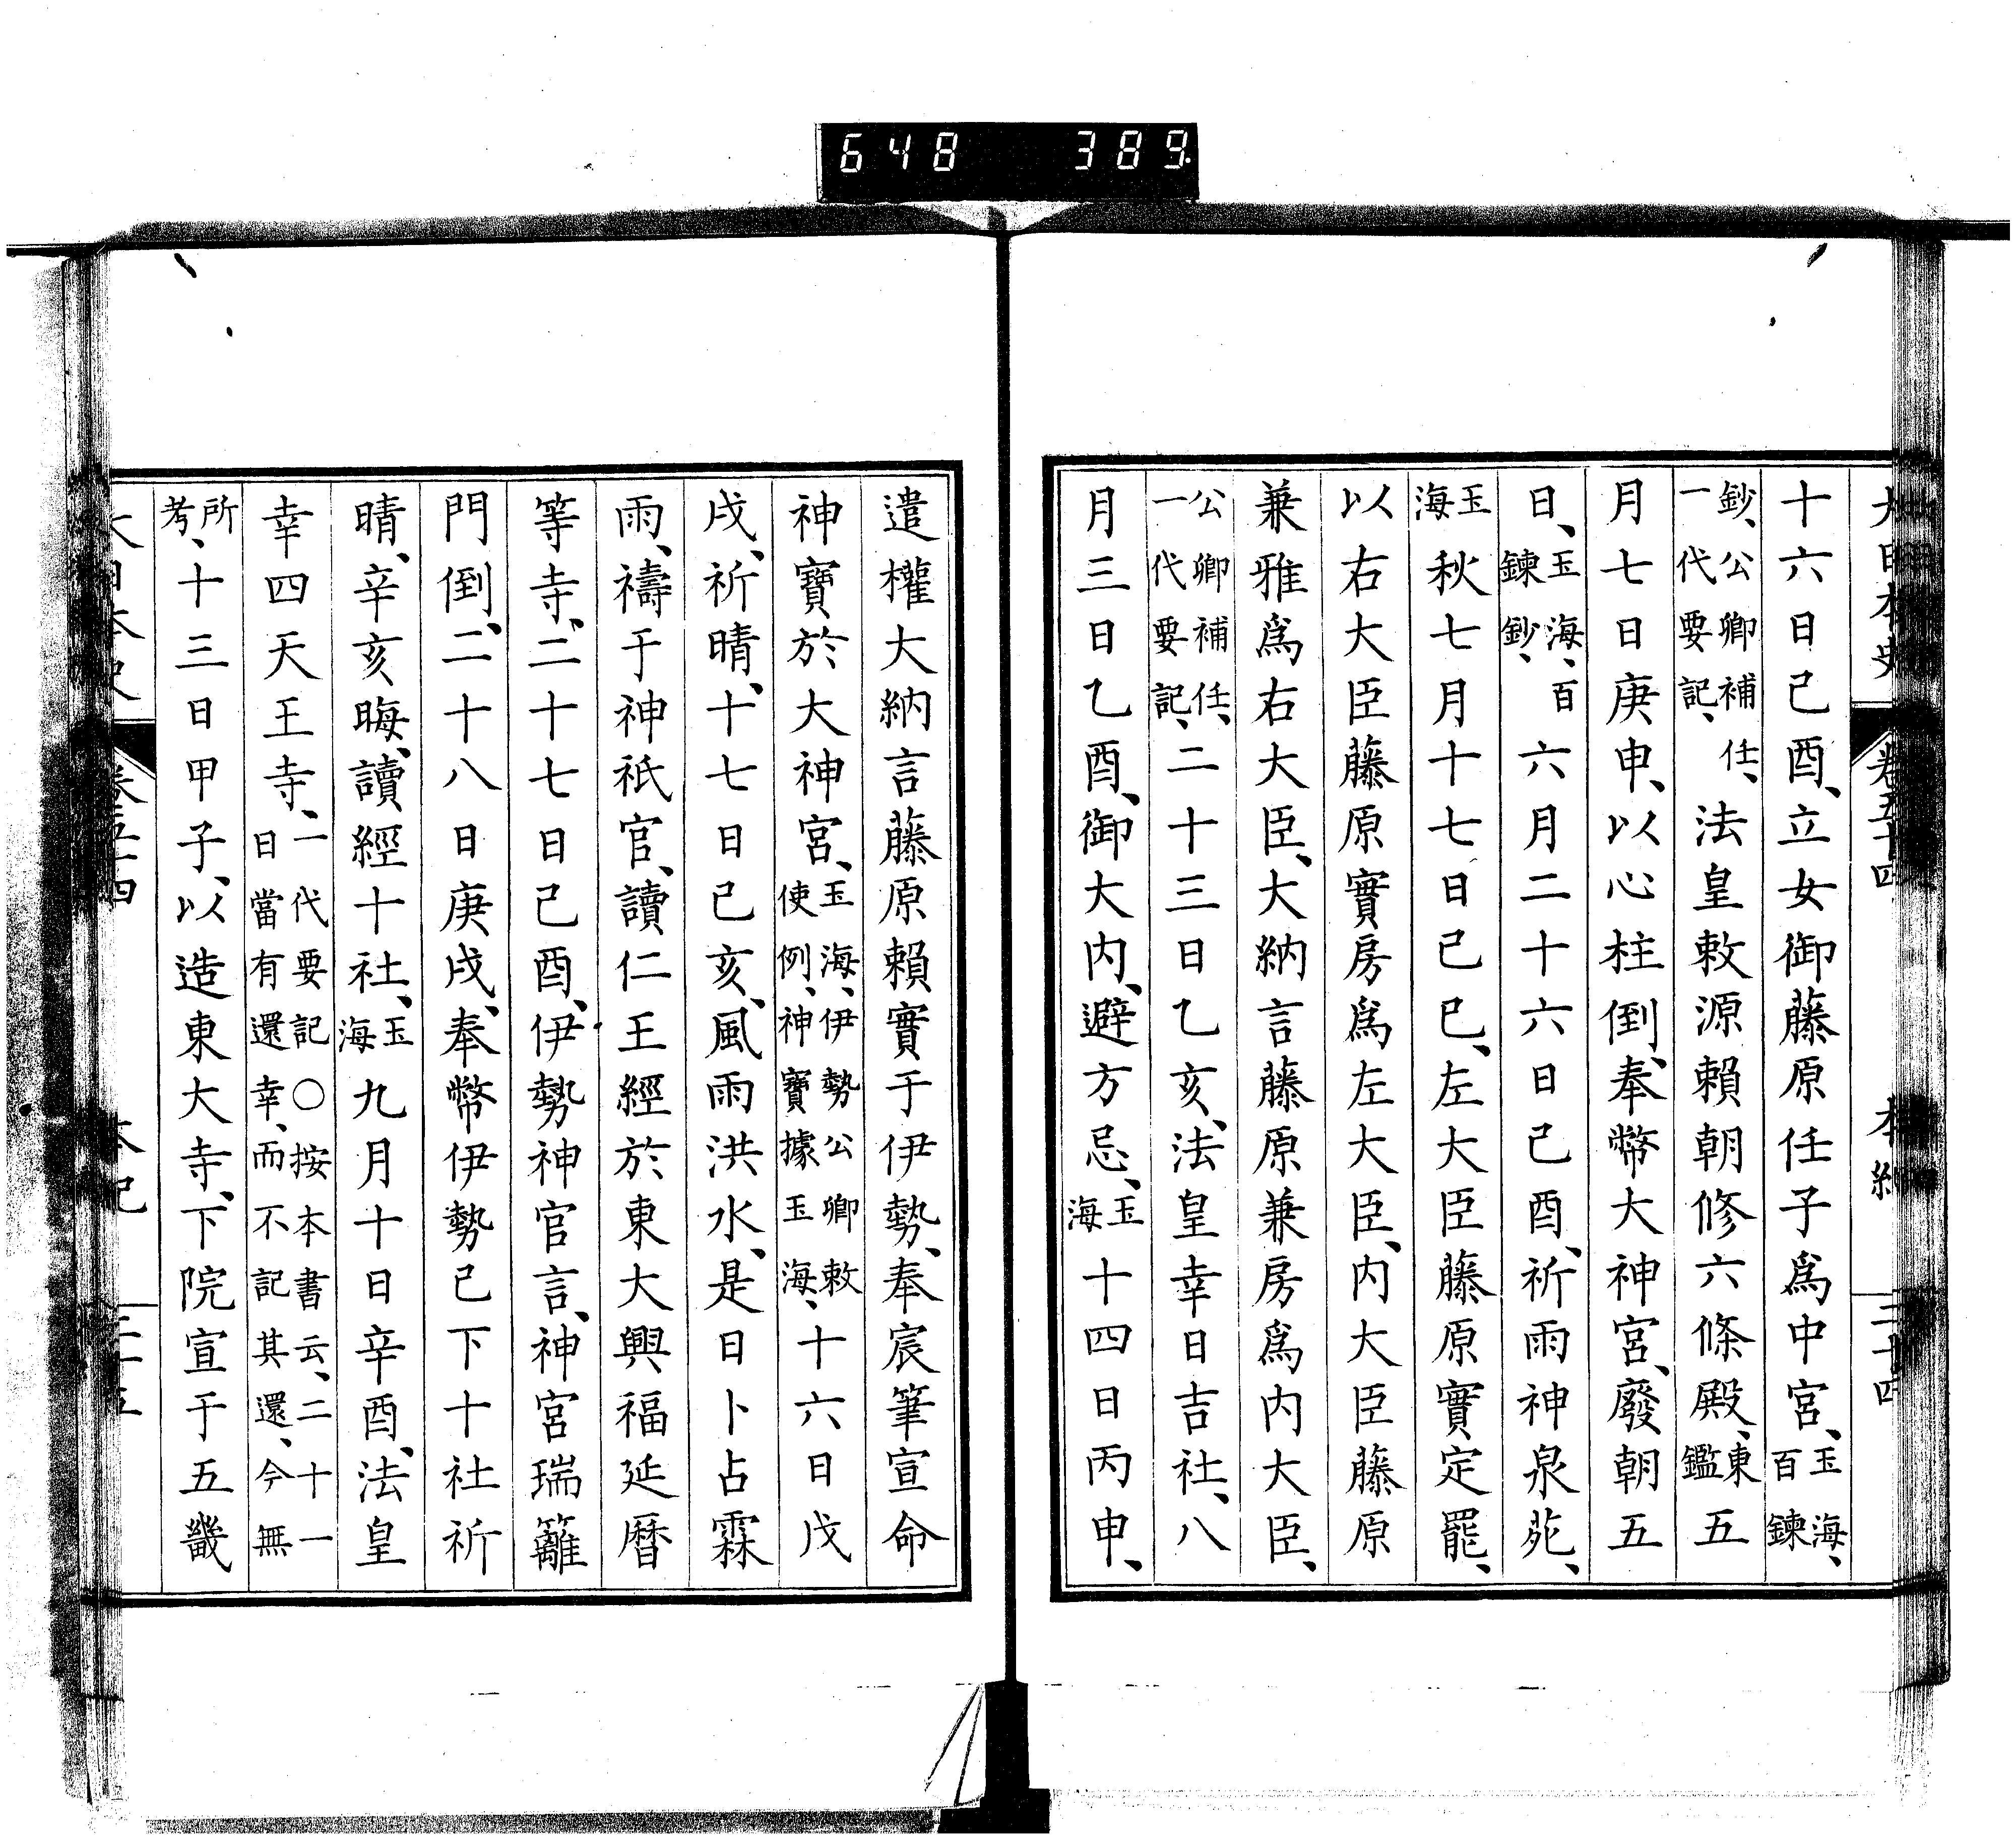 648 389
大日本史 卷五十四 本紀 三十四
十六日己酉、立女御藤原任子爲中宮、玉海、百鍊
鈔、公卿補任、一代要記、法皇敕源賴朝修六條殿、東鑑五
月七日庚申、以心柱倒、奉幣大神宮、廢朝五
日、玉海、百鍊鈔、六月二十六日己酉、祈雨神泉苑、
玉海秋七月十七日己巳、左大臣藤原實定罷、
以右大臣藤原實房爲左大臣、内大臣藤原
兼雅爲右大臣、大納言藤原兼房爲内大臣、
公卿補任、一代要記、二十三日乙亥、法皇幸日吉社、八
月三日乙酉、御大内、避方忌、玉海十四日丙申、
遣權大納言藤原賴實于伊勢、奉宸筆宣命
神寶於大神宮、玉海、伊勢公卿敕使例、神寶據玉海、十六日戊
戌、祈晴、十七日己亥、風雨洪水、是日卜占霖
雨、禱于神祇官、讀仁王經於東大興福延曆
等寺、二十七日己酉、伊勢神官言、神宮瑞籬
門倒、二十八日庚戌、奉幣伊勢已下十社祈
晴、辛亥晦、讀經十社、玉海九月十日辛酉、法皇
幸四天王寺、一代要記○按本書云、二十一日當有還幸、而不記其還、今無
所考、十三日甲子、以造東大寺、下院宣于五畿
大日本史 卷五十四 本紀 三十五